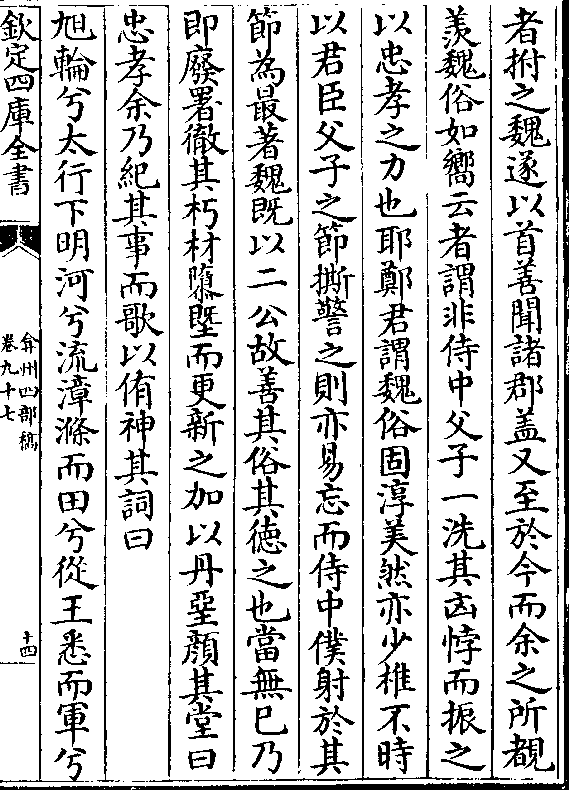 者拊之魏遂以首善聞諸郡盖又至於今而余之所覩
羨魏俗如嚮云者謂非侍中父子一洗其凶悖而振之
以忠孝之力也耶鄭君謂魏俗固淳美然亦少椎不時
以君臣父子之節撕警之則亦易忘而侍中僕射於其
節為最著魏既以二公故善其俗其徳之也當無已乃
即廢署徹其朽材隳塈而更新之加以丹堊顔其堂曰
忠孝余乃紀其事而歌以侑神其詞曰
旭輪兮太行下明河兮流漳滌而田兮從王悉而軍兮
欽定四庫全書
弇州四部稿
卷九十七
十四